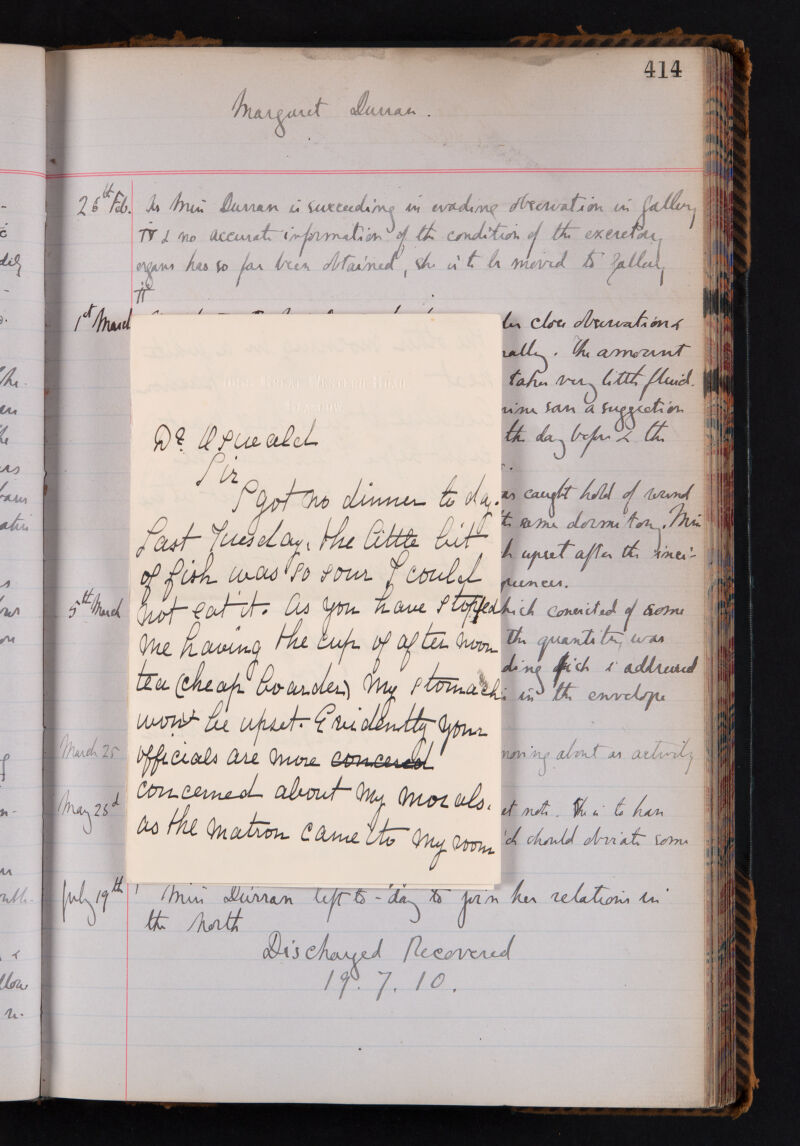 414
Margaret Durran.
26th Feb. As Miss Durran is succeeding in evading observation in Gallery
IV & no accurate information of the condition of the excretory
organs has so far been obtained, she is to be moved to Gallery
II
1st March
close observation &
The amount
taken very little fluid.
saw a suggestion
the day before & the
caught hold of
same dormitory. Miss
upset after the inci-
5th March which consisted of some
the quantity was
is addressed
in the envelope
March 25 moving about as actively
May 23d note. She is to have
should obviate some
July 19th Miss Durran left to-day to join her relations in
the North
Discharged Recovered
19.7.10.
Great Western Road
Glasgow
Dr. Oswald
Sir
I got no dinner to day.
Last Tuesday, the little bit
of fish was so sour I could
not eat it. As you have stopped
me having the cup of after noon
tea (cheap boarder) My stomach
won't be upset. Evidently your
officials are more concered
concerned about my morals.
as the matron came to my room